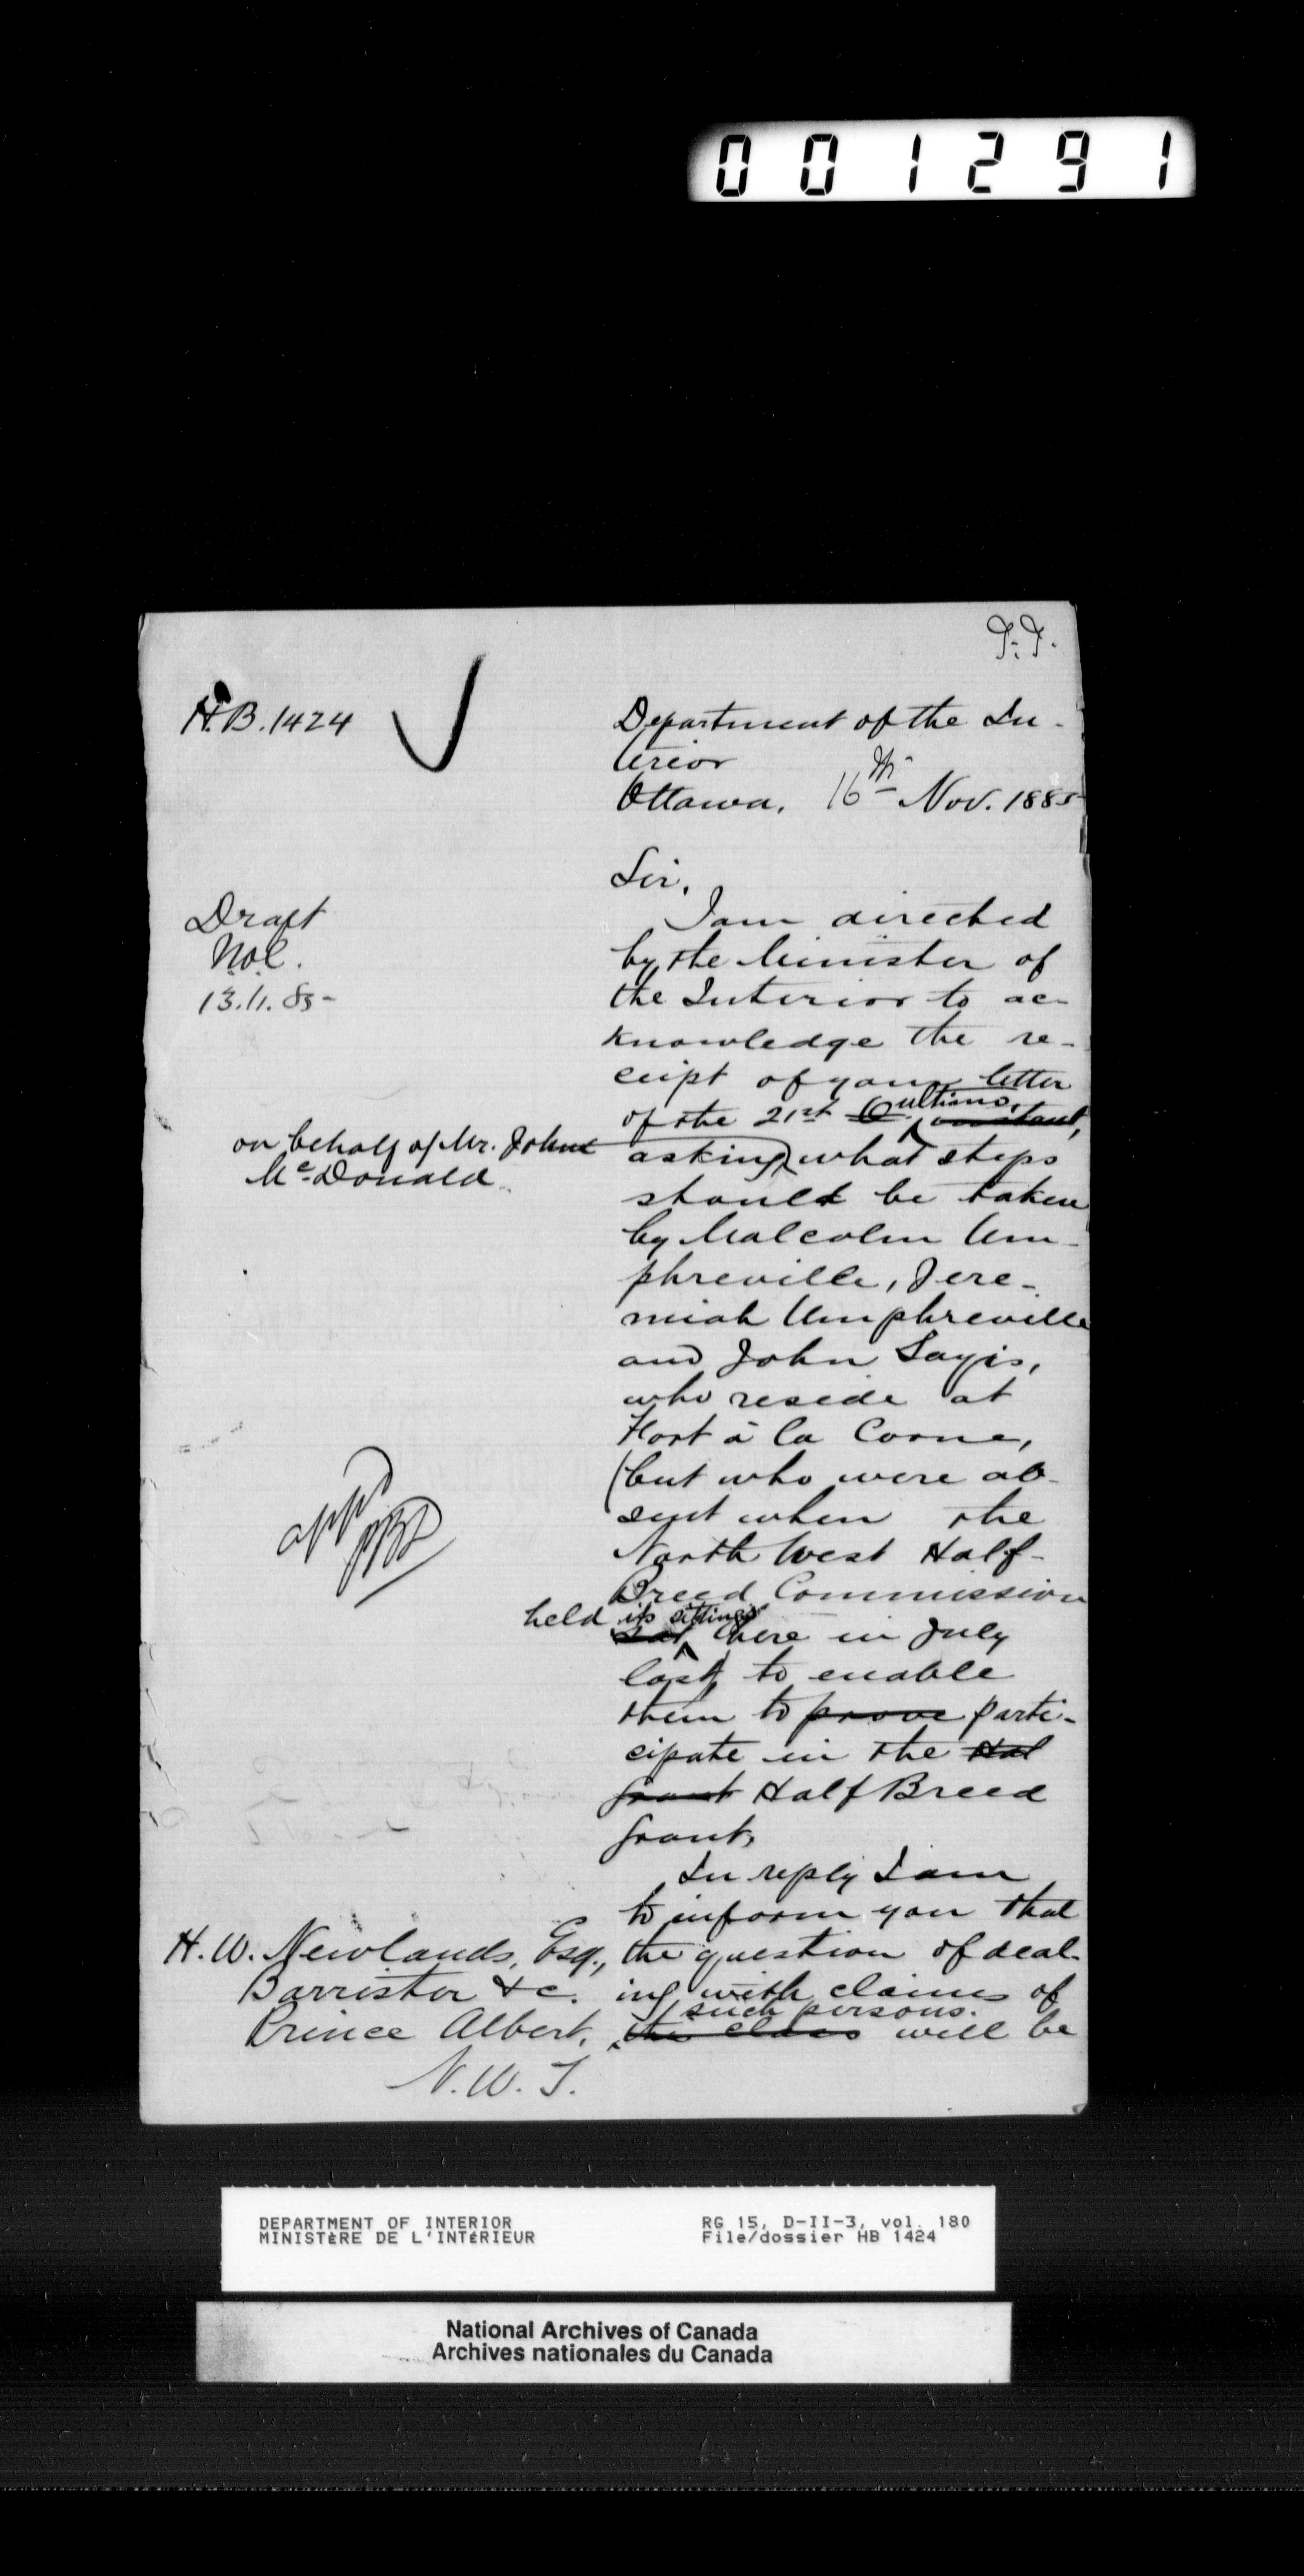 001291
H.B. 1424
Department of the In-
terior
Ottawa, 16th Nov. 1885
Draft
13.11.85
Sir,
I am directed
by the Minister of
the Interior to ac-
knowledge the re-
ceipt of your letter
of the 21st ultimo, instant,
on behalf of Mr. John
McDonald
asking what steps
should be taken
by Malcolm Um-
phreville, Jere-
miah Umphreville
and John Sayis,
who reside at
Fort à la Corne,
(but who were ab-
sent when the
North West Half-
Breed Commission
held its sittings
sat there in July
last) to enable
them to prove parti-
cipate in the Hal
grant Half Breed
grant,
In reply I am
to inform you that
the question of deal-
ing with claims of
such persons
the class will be
H. W. Newlands, Esq.,
Barrister &c.
Prince Albert,
N.W.T.
DEPARTMENT OF INTERIOR
MINISTÈRE DE L'INTÉRIEUR
RG 15, D-II-3, vol. 180
File/dossier HB 1424
National Archives of Canada
Archives nationales du Canada